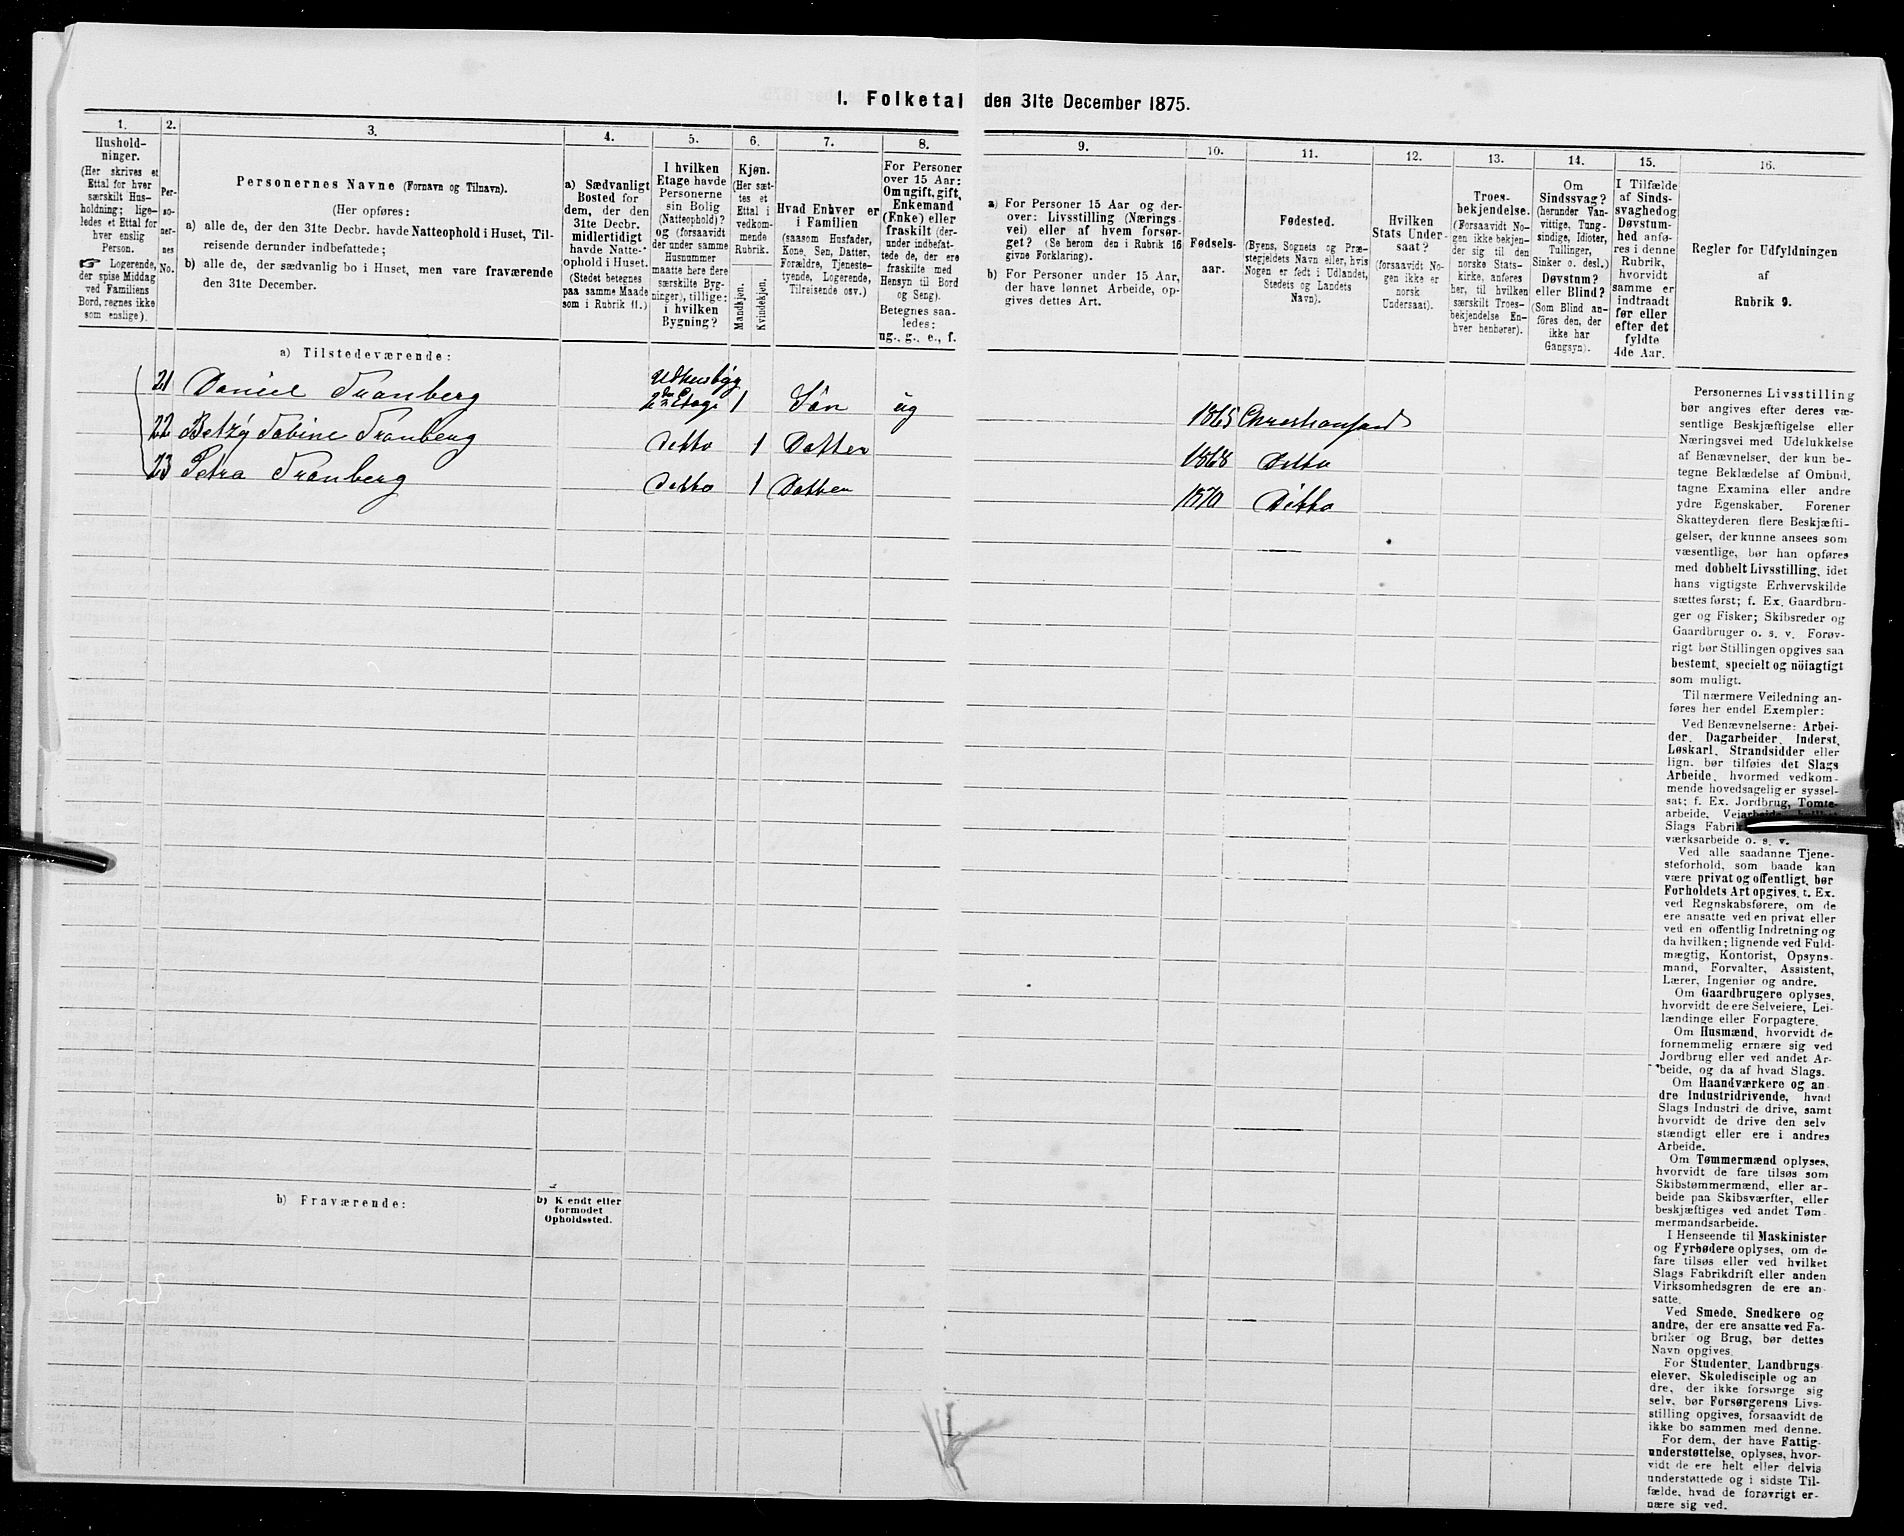 I. Folketal den 31te December 1875.
1.
Hushold-
ninger.
(Her skrives et
Ettal for hver
særskilt Hus-
holdning; lige-
ledes et Ettal for
hver enslig
Person.
Logerende,
der spise Middag
ved Familiens
Bord, regnes ikke
som enslige).
2.
Per-
so-
ner-
nes
No.
3.
Personernes Navne (Fornavn og Tilnavn).
(Her opføres:
a) alle de, der den 31te Decbr. havde Natteophold i Huset, Til-
reisende derunder indbefattede;
b) alle de, der sædvanlig bo i Huset, men vare fraværende
den 31te December.
4.
a) Sædvanligt
Bosted for
dem, der den
31te Decbr.
midlertidigt
havde Natte-
ophold i Huset.
(Stedet betegnes
paa samme Maade
som i Rubrik 11.)
5.
I hvilken
Etage havde
Personerne
sin Bolig
(Natteophold)?
og (forsaavidt
der under samme
Husnummer
maatte høre flere
særskilte Byg-
ninger), tillige:
i hvilken
Bygning?
6.
Kjøn.
(Her sæt-
tes et
Ettal i
vedkom-
mende
Rubrik.
Mandkjøn.
Kvindekjøn.
7.
Hvad Enhver er
i Familien
(saasom Husfader,
Kone, Søn, Datter,
Forældre, Tjeneste-
tyende, Logerende,
Tilreisende osv.)
8.
For Personer
over 15 Aar:
Om ugift, gift,
Enkemand
(Enke) eller
fraskilt (der-
under indbefat-
tede de, der ere
fraskilte med
Hensyn til Bord
og Seng).
Betegnes saa-
ledes:
ug., g., e., f.
9.
a) For Personer 15 Aar og der-
over: Livsstilling (Nærings-
vei) eller af hvem forsør-
get? (Se herom den i Rubrik 16
givne Forklaring).
b) For Personer under 15 Aar,
der have lønnet Arbeide, op-
gives dettes Art.
10.
Fødsels-
aar.
11.
Fødested.
(Byens, Sognets og Præ-
stegjeldets Navn eller, hvis
Nogen er født i Udlandet,
Stedets og Landets
Navn).
12.
Hvilken
Stats Under-
saat?
(forsaavidt No-
gen ikke er
norsk
Undersaat).
13.
Troes-
bekjendelse.
(Forsaavidt No-
gen ikke bekjen-
der sig til den
norske Stats-
kirke, anføres
her, til hvilken
særskilt Troes-
bekjendelse En-
hver henhører).
14.
Om
Sindssvag?
(herunder Van-
vittige, Tung-
sindige, Idioter,
Tullinger,
Sinker o. desl.)
Døvstum?
eller Blind?
(Som Blind an-
føres den, der
ikke har
Gangsyn).
15.
I Tilfælde
af Sinds-
svaghed og
Døvstum-
hed anfø-
res i denne
Rubrik,
hvorvidt
samme er
indtraadt
før eller
efter det
fyldte
4de Aar.
16.
Regler for Udfyldningen
af
Rubrik 9.
a) Tilstedeværende:
21 Daniel Tranberg Udhusbyg 2den Etage 1 Søn ug 1865 Christiansand
22 Betzy Sabine Tranberg Ditto 1 Datter 1868 Ditto
23 Petra Tranberg Ditto 1 Datter 1870 Ditto
b) Fraværende:
b) Kjendt eller
formodet
Opholdssted.
Personernes Livsstilling
bør angives efter deres væ-
sentlige Beskjæftigelse eller
Næringsvei med Udelukkelse
af Benævnelser, der kun be-
tegne Beklædelse af Ombud,
tagne Examina eller andre
ydre Egenskaber. Forener
Skatteyderen flere Beskjæfti-
gelser, der kunne ansees som
væsentlige, bør han opføres
med dobbelt Livsstilling, idet
hans vigtigste Erhvervskilde
sættes først; f. Ex. Gaardbru-
ger og Fisker; Skibsreder og
Gaardbruger o. s. v. Forøv-
rigt bør Stillingen opgives saa
bestemt, specielt og nöiagtigt
som muligt.
Til nærmere Veiledning an-
føres her endel Exempler:
Ved Benævnelserne: Arbei-
der, Dagarbeider, Inderst,
Løskarl, Strandsidder eller
lign. bør tilføies det Slags
Arbeide, hvormed vedkom-
mende hovedsagelig er syssel-
sat; f. Ex. Jordbrug, Tomte-
arbeide, Veiarbeide,
Slags Fabrik
værksarbeide o. s. v.
Ved alle saadanne Tjene-
steforhold, som baade kan
være privat og offentligt, bør
Forholdets Art opgives, t. Ex.
ved Regnskabsførere, om de
ere ansatte ved en privat eller
ved en offentlig Indretning og
da hvilken; lignende ved Fuld-
mægtig, Kontorist, Opsyns-
mand, Forvalter, Assistent,
Lærer, Ingeniør og andre.
Om Gaardbrugere oplyses,
hvorvidt de ere Selveiere, Lei-
lændinge eller Forpagtere.
Om Husmænd, hvorvidt de
fornemmelig ernære sig ved
Jordbrug eller ved andet Ar-
beide, og da af hvad Slags.
Om Haandværkere og an
dre Industridrivende, hvad
Slags Industri de drive, samt
hvorvidt de drive den selv
stændigt eller ere i andres
Arbeide.
Om Tømmermænd oplyses,
hvorvidt de fare tilsøs som
Skibstømmermænd, eller ar-
beide paa Skibsværfter, eller
beskjæftiges ved andet Tøm-
mermandsarbeide.
I Henseende til Maskinister
og Fyrbødere oplyses, om de
fare tilsøs eller ved hvilket
Slags Fabrikdrift eller anden
Virksomhedsgren de ere an-
satte.
Ved Smede, Snedkere og
andre, der ere ansatte ved Fa-
briker og Brug, bør dettes
Navn opgives.
For Studenter, Landbrugs
elever, Skoledisciple og an
dre, der ikke forsørge sig
selv, bør Forsørgerens Livs-
stilling opgives, forsaavidt de
ikke bo sammen med denne.
For dem, der have Fattig-
understøttelse, oplyses, hvor-
vidt de ere helt eller delvis
understøttede og i sidste Til-
fælde, hvad de forøvrigt er-
nære sig ved.